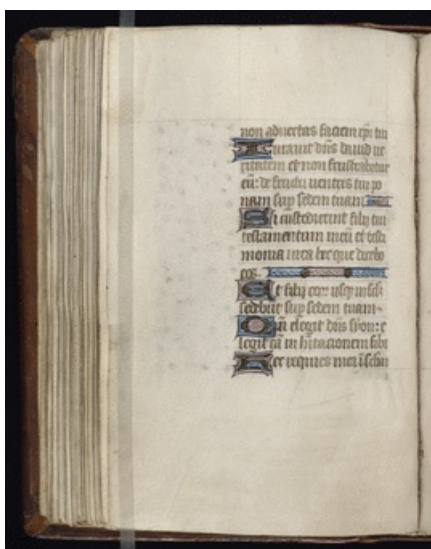 non advertas faciem xpi tui
Iuravit dns david ve
ritatem et non frustrabitur
eu: de fructu ventris tui po
nam sup sedem tuam
Si custodierint filij tui
testamentum meu et testi
monia mea hec que docebo
eos.
Et filij eor usq in sclm
sedebut sup sedem tuam
Qm elegit dns syon: e
legit ea in hitacionem sibi
Hec requies mea i sclm